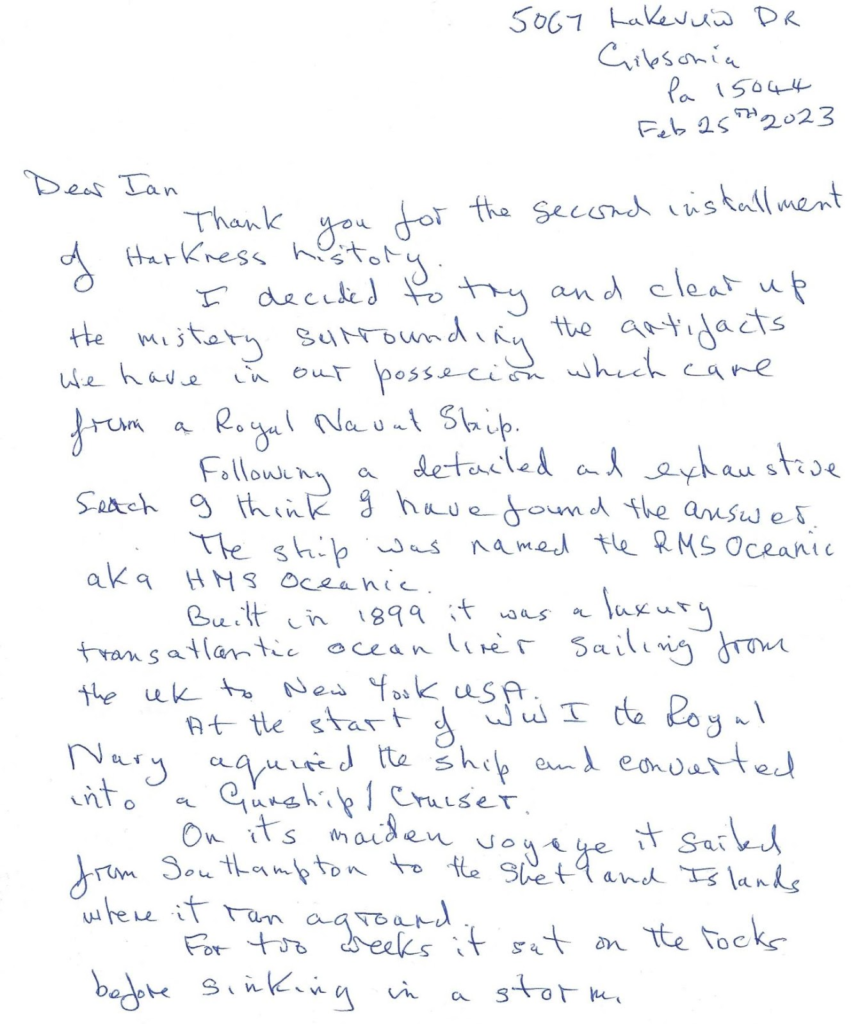 5067 Lakeview DR
Gibsonia
Pa 15044
Feb 25TH 2023
Dear Ian
Thank you for the second installment
of Harkress history.
I decided to try and clear up
the mistery surrounding the artifacts
we have in our possecion which came
from a Royal Naval Ship.
Following a detailed and exhaustive
Seach I think I have found the answer.
The ship was named the RMS Oceanic
aka HMS Oceanic.
Built in 1899 it was a luxury
transatlantic ocean liner sailing from
the UK to New York USA.
At the start of WW I the Royal
Navy aquired the ship and converted
into a Gunship/Cruiser.
On its maiden voyage it sailed
from Southampton to the Shetland Islands
where it ran aground.
For two weeks it sat on the rocks
before sinking in a storm.